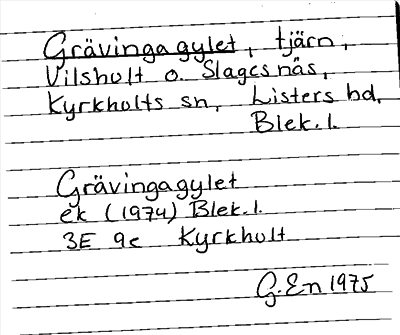 Grävingagylet, tjärn,
Vilshult o. Slagesnäs,
Kyrkhults sn, Listers hd.
Blek.l.
Grävingagylet
ek (1974) Blek.l.
3E 9c Kyrkhult
G.En 1975